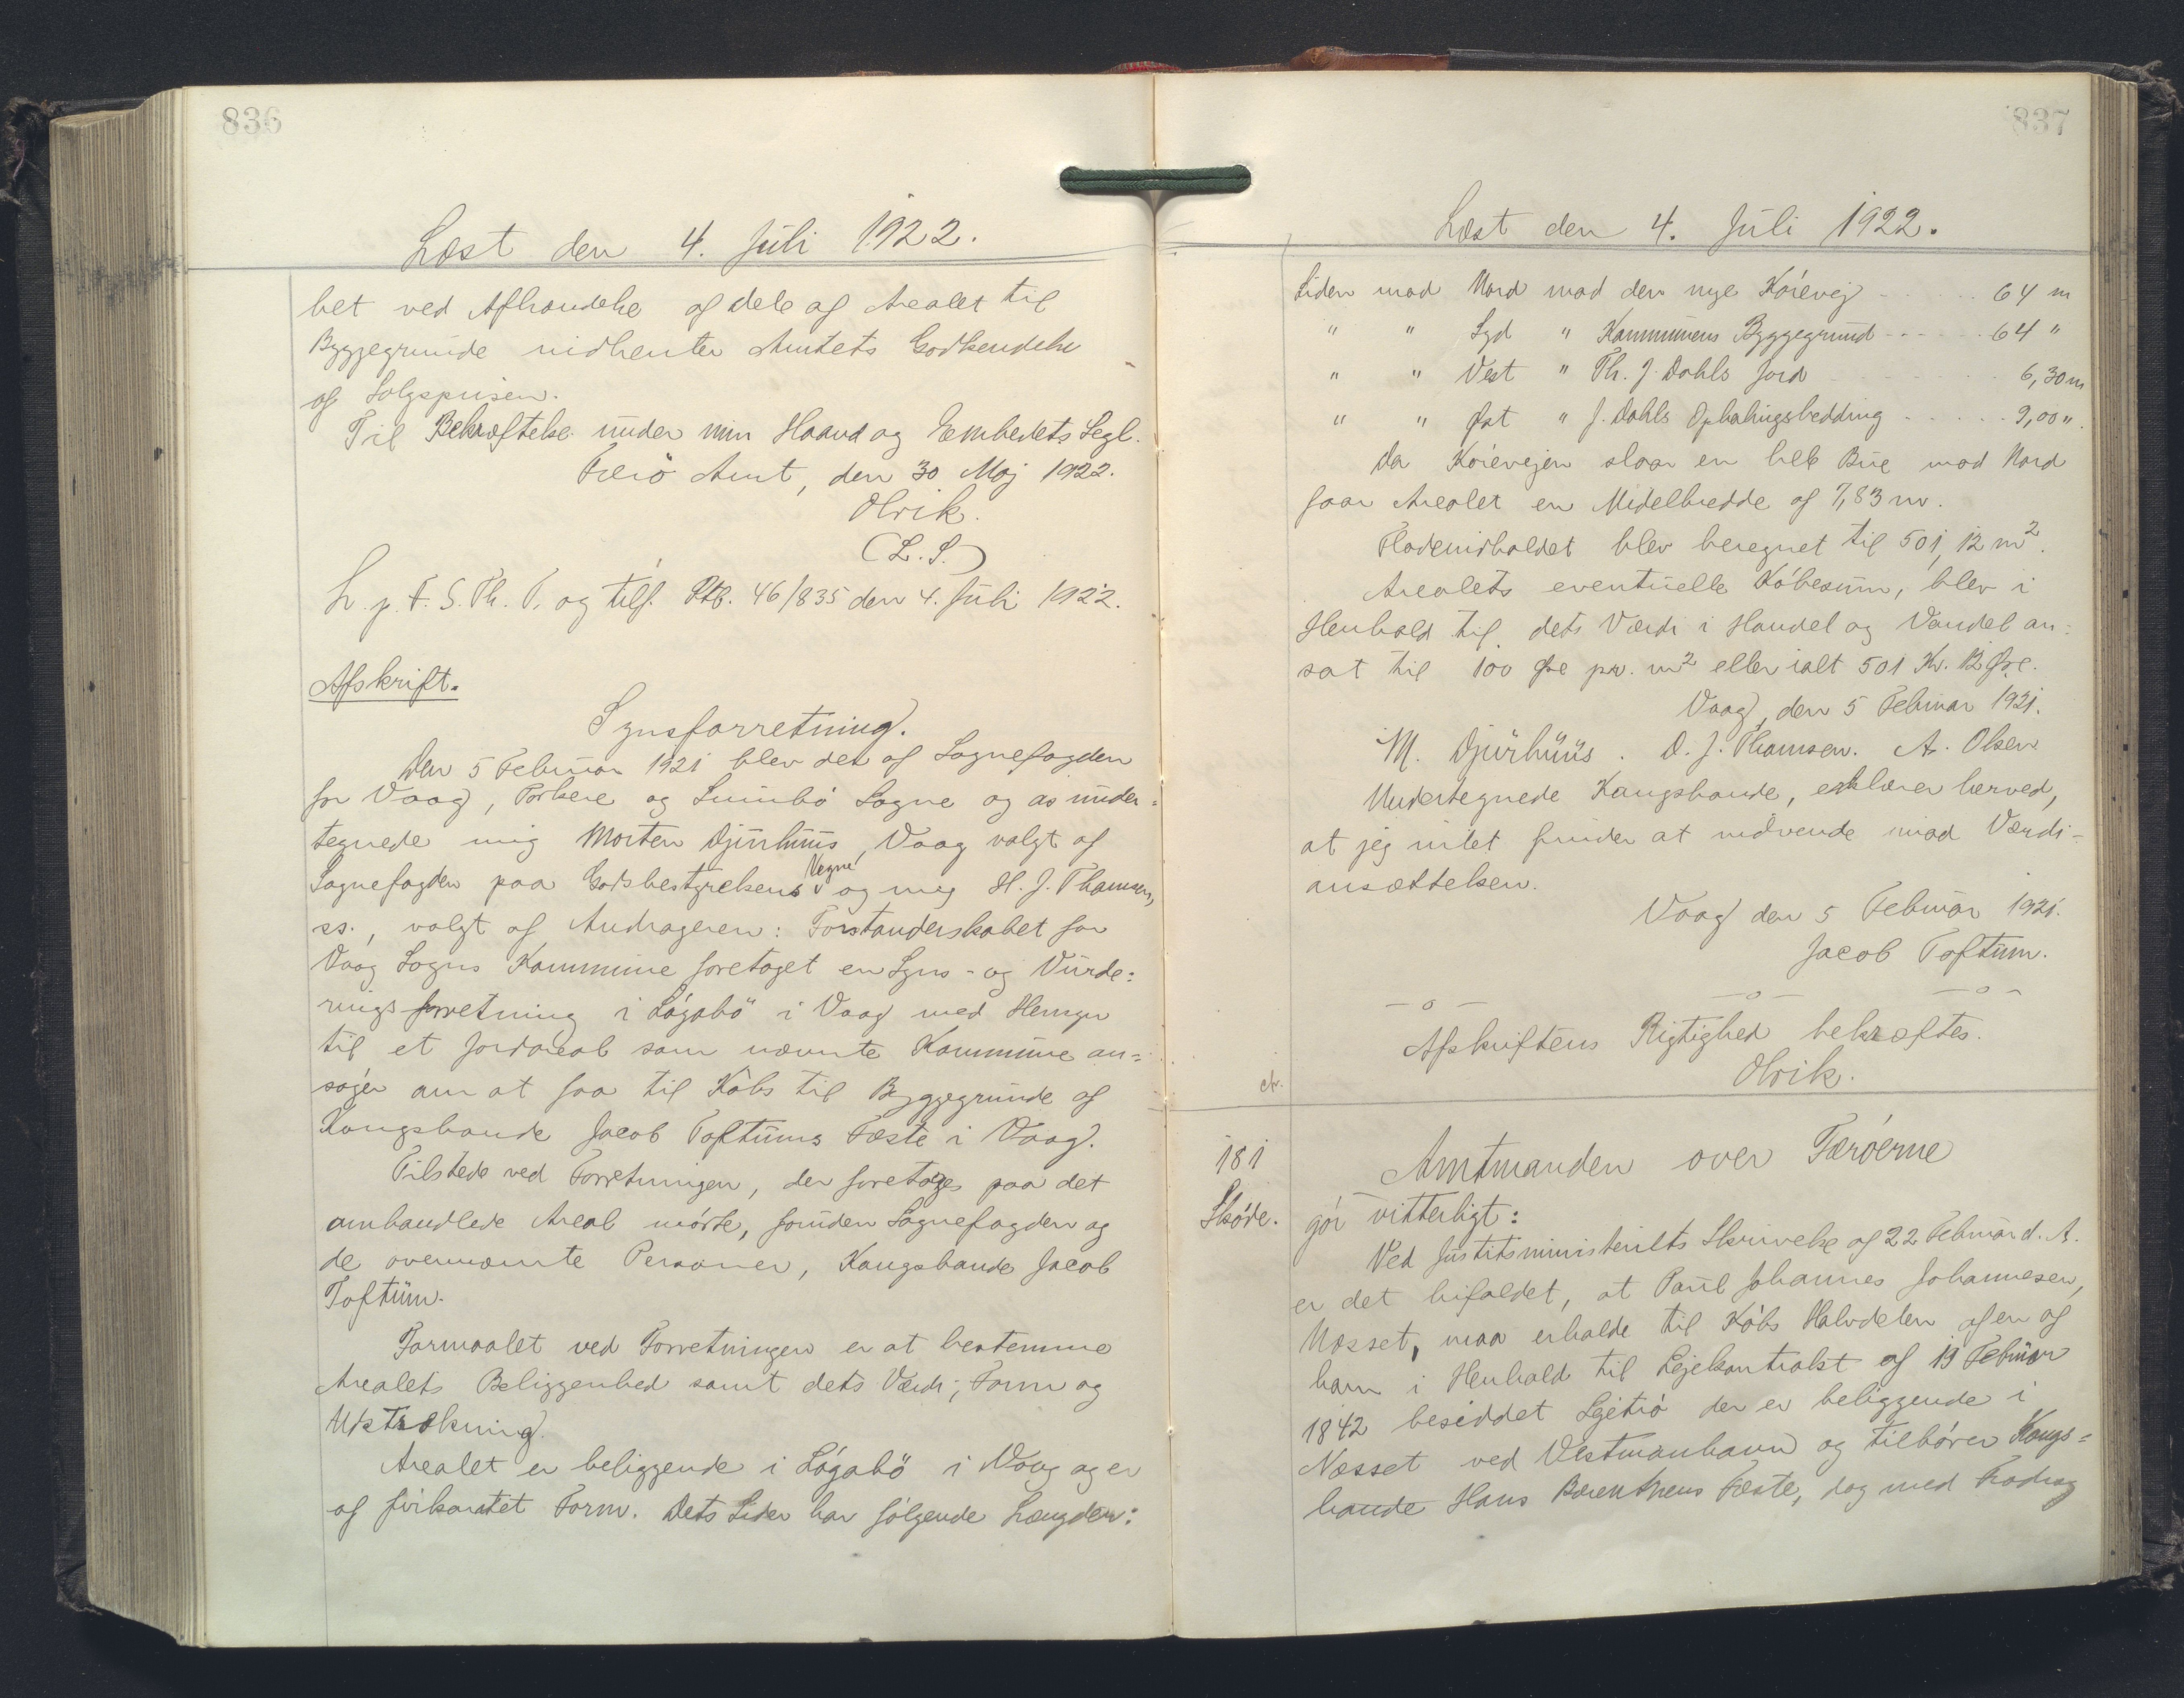 836
Læst den 4. Juli 1922.
bet ved Afhændelse af Dele af Arealet til
Byggegrunde indhenter Amtets Godkendelse
af Salgsprisen.
Til Bekræftelse under min Haand og Embedets Segl.
Færö Amt, den 30. Maj 1922.
Olrik.
(L.S.)
L. p. F. S. Th. T. og tilf. Ptb. 46/835 den 4. Juli 1922.
Afskrift.
Synsforretning.
Den 5 Februar 1921 blev det af Sognefogden
for Vaag, Porkere og Sumbö Sogne og as under=
tegnede mig Morten Djurhuus, Vaag valgt af
Sognefogden paa Godsbestyrelsens Vegne og mig H. J. Thomsen,
ss., valgt af Andrageren: Forstanderskabet for
Vaag Sogns Kommune foretaget en Syns- og Vurde=
ringsforretning i Lágabö i Vaag med Hensyn
til et Jordareal som nævnte Kommune an=
søger om at faa til Købs til Byggegrunde af
Kongsbonde Jacob Toftums Fæste i Vaag.
Tilstede ved Forretningen, der foretoges paa det
omhandlede Areal mødte, foruden Sognefogden og
de ovennævnte Personer, Kongsbonde Jacob
Toftum.
Formaalet ved Forretningen er at bestemme
Arealets Beliggenhed samt dets Værdi, Form og
Udstrækning.
Arealet er beliggende i Lágabö i Vaag og er
af firkantet Form. Dets Sider har følgende Længder:
837
Læst den 4. Juli 1922.
Siden mod Nord mod den nye Kørevej - - - 64 m
" " Syd " Kommunens Byggegrund - - - 64 "
" " Vest " Th. J. Dahls Jord - - - 6,30 m
" " Øst " J. Dahls Ophalingsbedding - - - 9,00 ".
Da Kørevejen slaar en hel Bue mod Nord
faar Arealet en Middelbredde af 7,83 m.
Fladeindholdet blev beregnet til 501,12 m².
Arealets eventuelle Købesum, blev i
Henhold til dets Værdi i Handel og Vandel an=
sat til 100 Øre pr. m² eller ialt 501 Kr. 12 Øre.
Vaag, den 5 Februar 1921.
M. Djurhuus. D. J. Thomsen. A. Olsen
Undertegnede Kongsbonde, erklærer herved,
at jeg intet finder at indvende imod Værdi=
ansættelsen.
Vaag den 5 Februar 1921.
Jacob Toftum.
—o— —o— —o—
Afskriftens Rigtighed bekræftes.
Olrik.
181
Skøde.
Amtmanden over Færöerne
gör vitterligt:
Ved Justitsministeriets Skrivelse af 22 Februar d. A.
er det bifaldet, at Paul Johannes Johannesen,
Nesset, maa erholde til Købs Halvdelen af en af
ham i Henhold til Lejekontrakt af 19 Februar
1842 besiddet Lejetrö der er beliggende i
Nesset ved Vestmanhavn og tilhører Kongs=
bonde Hans Berenthsens Fæste, dog med Fradrag